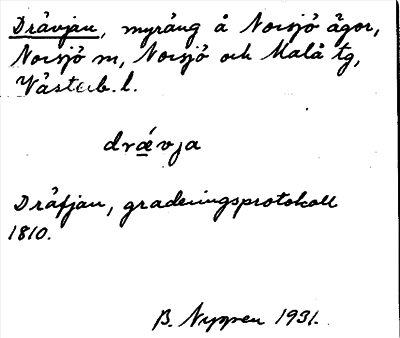 Drävjan, myräng å Norsjö ägor,
Norsjö sn, Norsjö och Malå tg,
Västerb. l.
drǽvja
Dräfjan, graderingsprotokoll
1810.
B. Nyppen 1931.